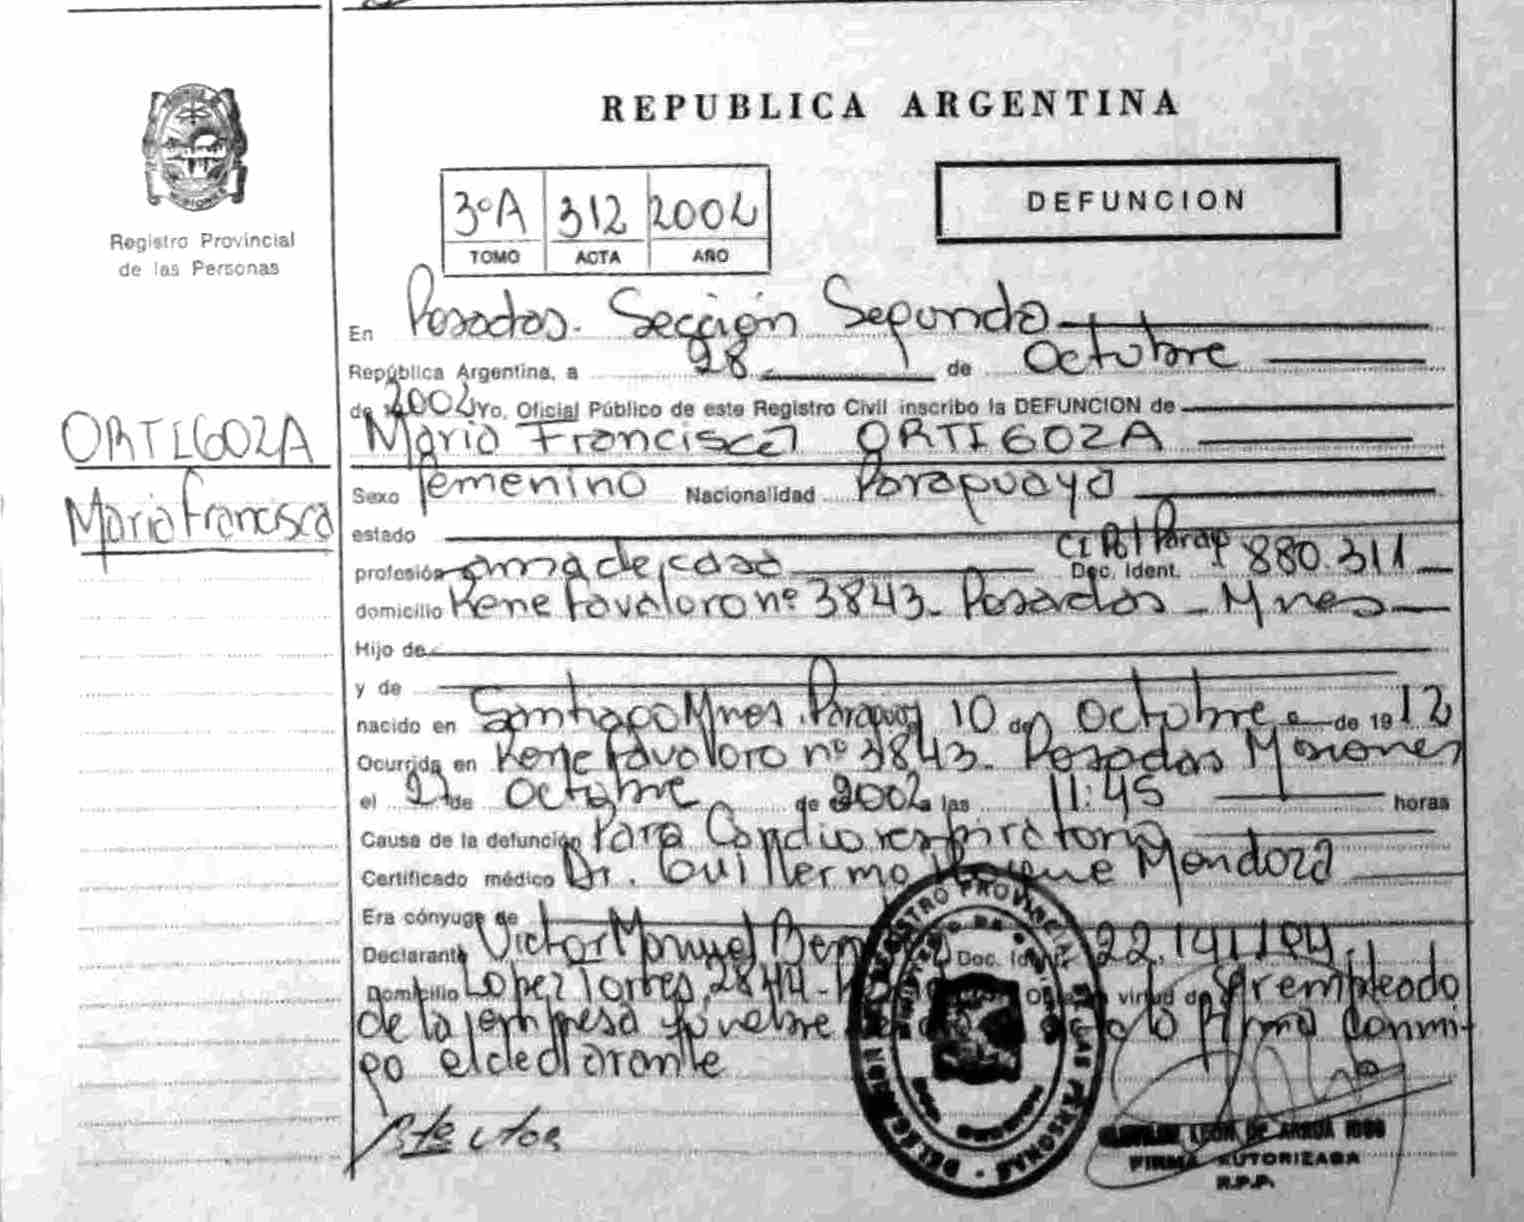 REPUBLICA ARGENTINA
Registro Provincial
de las Personas
3ºA 312 2002
TOMO ACTA AÑO
DEFUNCION
ORTIGOZA
Maria Francisca
En Posadas. Sección Segunda
República Argentina, a 28 de Octubre
de 2002 Yo, Oficial Público de este Registro Civil inscribo la DEFUNCION de
Maria Francisca ORTIGOZA
Sexo femenino Nacionalidad Paraguaya
estado
profesión ama de casa Dec. Ident. CI Pol Parag 880.311
domicilio Rene favaloro nº 3843. Posadas - Mnes
Hijo de
y de
nacido en Santiago Mnes. Paraguay 10 de Octubre de 1912
Ocurrida en Rene favaloro nº 3843. Posadas Misiones
el 27 de Octubre de 2002 las 11:45 horas
Causa de la defunción Paro Cardio respiratorio
Certificado médico Dr. Guillermo Roque Mendoza
Era cónyuge de
Declarante Victor Manuel Doc. Ident. 22.141.104
Domicilio Lopez Torres 2844 - virtud de Ser empleado
de la empresa funebre la firma conmi-
go el declarante
REGISTRO PROVINCIAL DE LAS PERSONAS
LEON DE ARRUA
FIRMA AUTORIZADA
R.P.P.